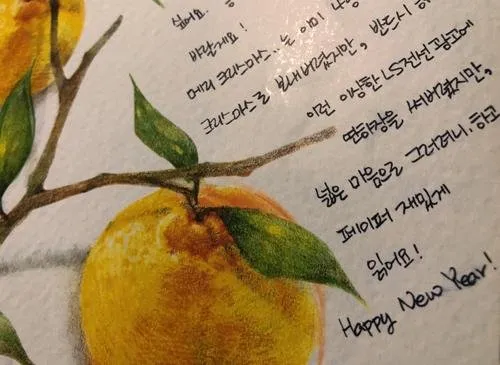 읽어요.
바랄게요!
메리 크리스마스.. 는 이미 나
크리스마스로 보내버렸지만, 반드시
이런 이상한 LS전선 광고에
연하장을 써버렸지만,
넓은 마음으로 그러려니.. 하고
페이퍼 재밌게
읽어요!
Happy New Year!